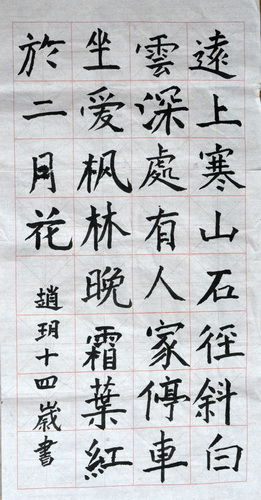 遠上寒山石徑斜白
雲深處有人家停車
坐爱枫林晚霜葉紅
於二月花
趙玥十四歲書